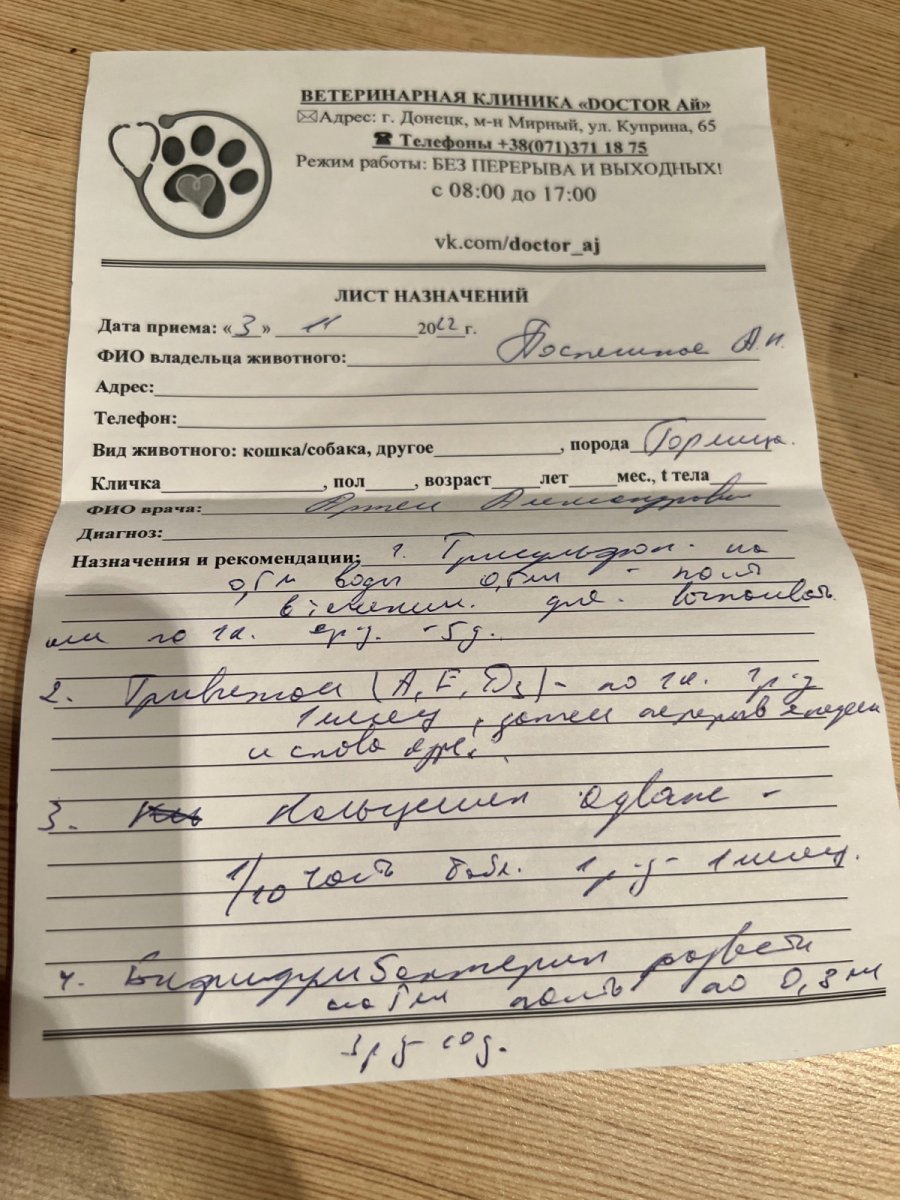 ВЕТЕРИНАРНАЯ КЛИНИКА «DOCTOR Ай»
Адрес: г. Донецк, м-н Мирный, ул. Куприна, 65
Телефоны +38(071)371 18 75
Режим работы: БЕЗ ПЕРЕРЫВА И ВЫХОДНЫХ!
с 08:00 до 17:00
vk.com/doctor_aj
ЛИСТ НАЗНАЧЕНИЙ
Дата приема: «3» 11 2022 г.
ФИО владельца животного: А.Н.
Адрес:
Телефон:
Вид животного: кошка/собака, другое , порода Горлица.
Кличка , пол , возраст лет мес., t тела
ФИО врача: Артем Александрович
Диагноз:
Назначения и рекомендации: 1. Трисульфон - на
воды - поить
для
или по 1 к. - 5 д.
2. Тривитом (A, E, D3) - по 1 к. 1 р-д
1 месяц, затем перерыв
и снова
3. Кальцемин Адванс -
1/10 часть табл. 1 р-д - 1 месяц.
4. Бифидумбактерин развести
на 5 мл поить по 0,3 мл
3 р-д